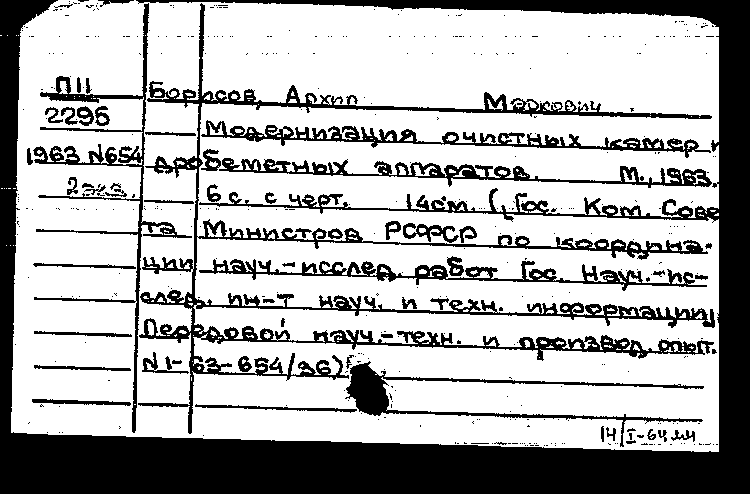 П11
2295
1963 N654
2экз.
Борисов, Архип Маркович
Модернизация очистных камер и
дробеметных аппаратов. М., 1963.
6 с. с черт. 14см. (Гос. Ком. Сове
та Министров РСФСР по координа-
ции науч.-исслед. работ Гос. Науч.-ис-
след. ин-т науч. и техн. информации
Передовой науч.-техн. и производ. опыт.
N 1-63-654/36)
14/I-64